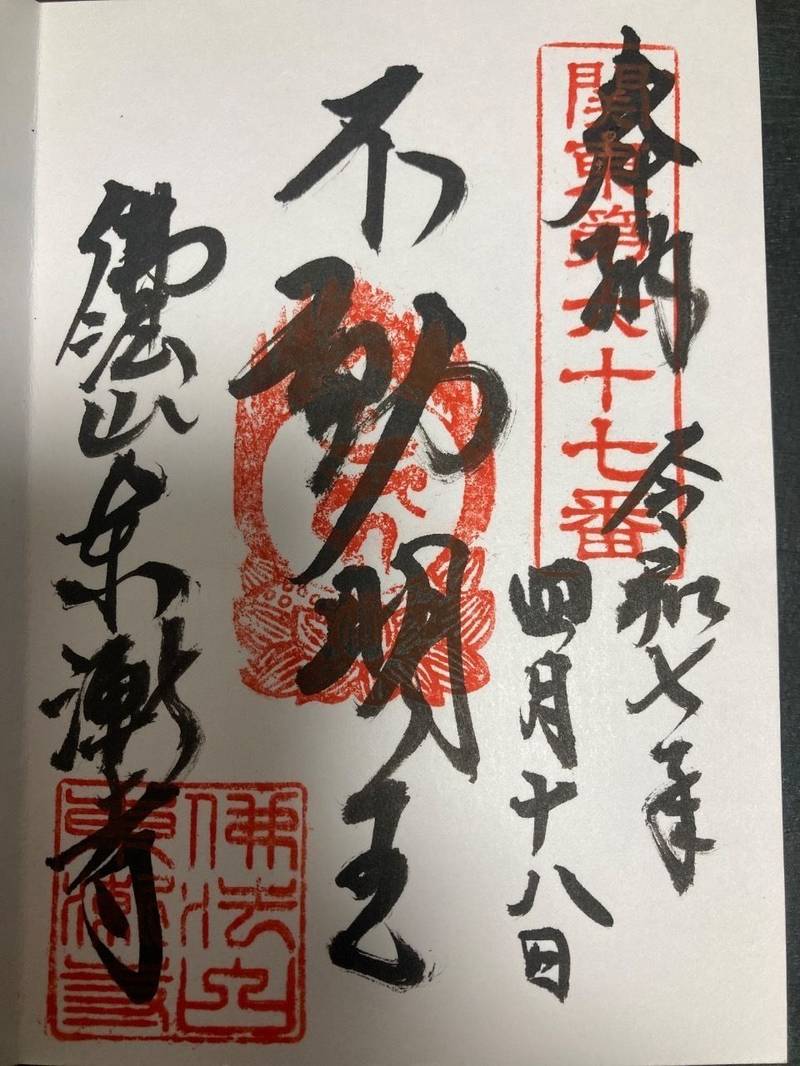 奉納
関東第六十七番
令和七年
四月十八日
不動明王
佛法山東漸寺
佛法山
東漸寺